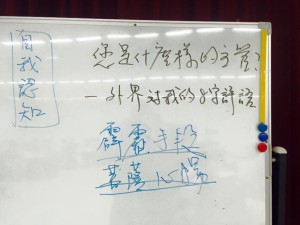 自我認知
您是什麼樣的主管?
一外界對我的8字評語
霹靂手段
菩薩心腸